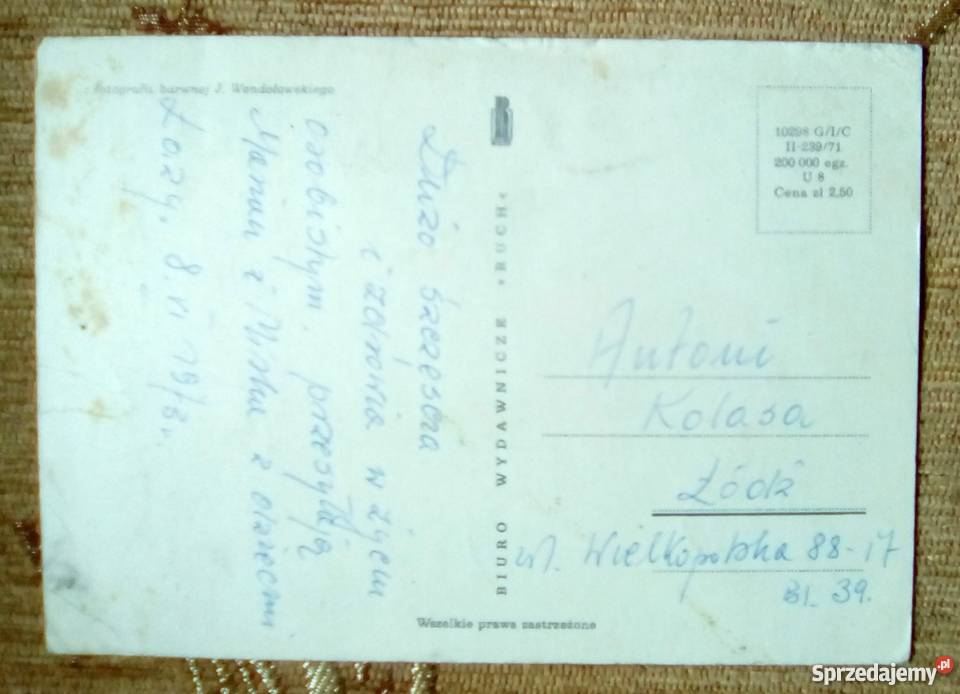 Fotografia barwnej J. Wendołowskiego
Dużo szczęścia
i zdrowia w życiu
osobistym przesyłają
Marian i z dziećmi
8 VI
BIURO WYDAWNICZE »RUCH«
10298 G/I/C
II-239/71
200 000 egz.
U 8
Cena zł 2,50
Antoni
Kolasa
Łódź
ul. Wielkopolska 88-17
Bl. 39.
Wszelkie prawa zastrzeżone
Sprzedajemy.pl